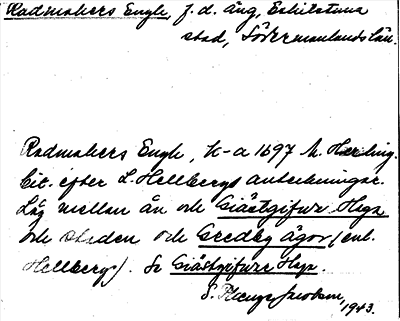 Radmakers Engh, f.d. äng, Eskilstuna
stad, Södermanlands län.
Radmakers Engh, K-a 1697 M. Hærling.
Cit. efter L. Hellbergs anteckningar.
Låg mellan ån och Giästgifwr Haga
och staden och Gredby ägor (enl.
Hellberg). Se Giästgifwre Haga.
S. 1943.